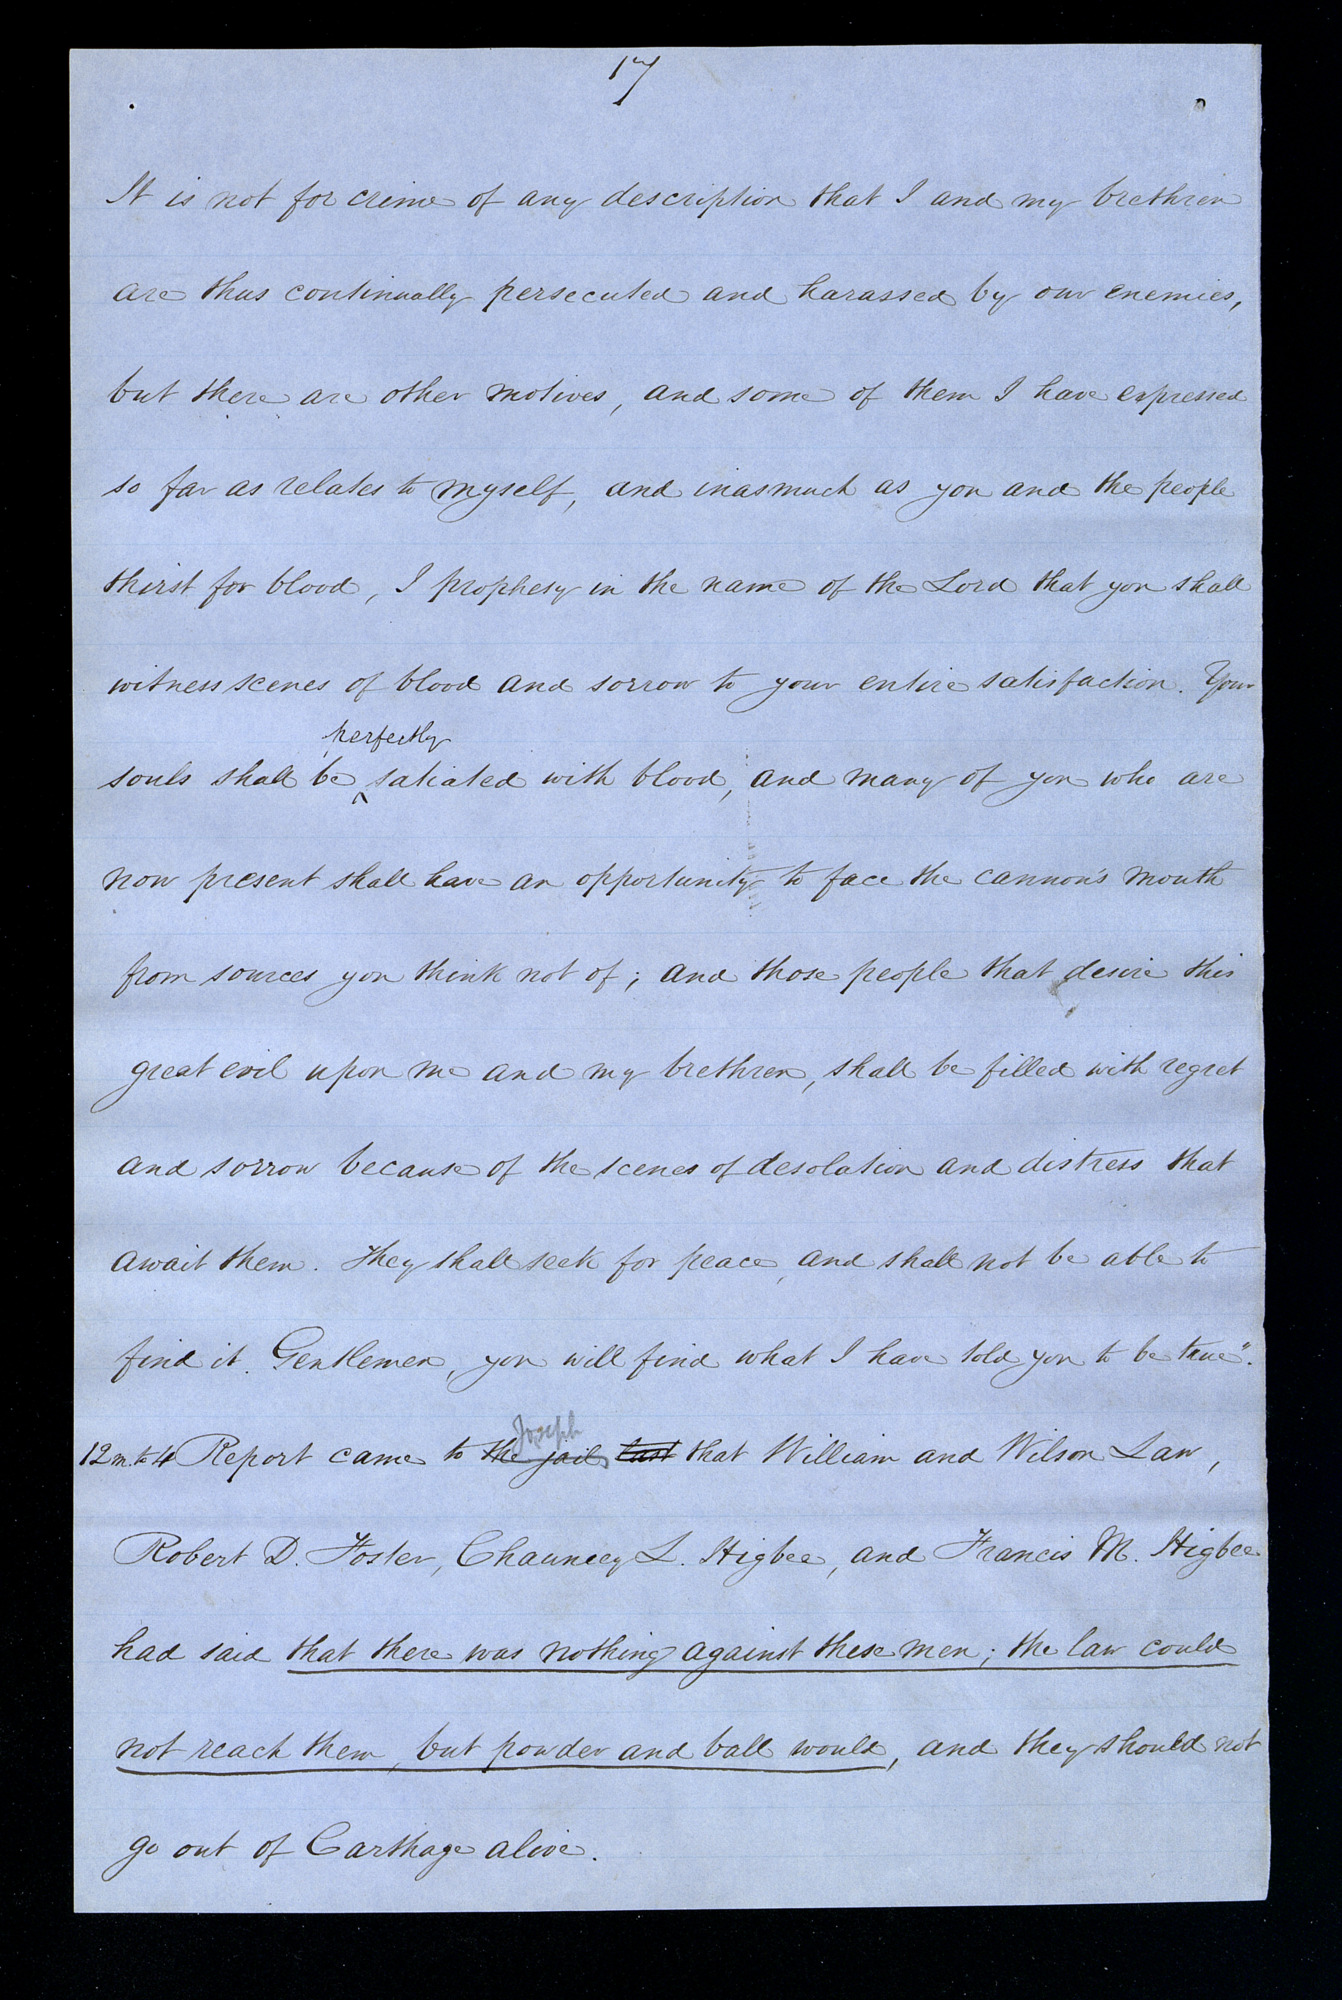 17
It is not for crime of any description that I and my brethren
are thus continually persecuted and harassed by our enemies,
but there are other motives, and some of them I have expressed
so far as relates to myself, and inasmuch as you and the people
thirst for blood, I prophesy in the name of the Lord that you shall
witness scenes of blood and sorrow to your entire satisfaction. Your
perfectly
souls shall be ‸ satiated with blood, and many of you who are
now present shall have an opportunity to face the cannon's mouth
from sources you think not of; and those people that desire this
great evil upon me and my brethren, shall be filled with regret
and sorrow because of the scenes of desolation and distress that
await them. They shall seek for peace, and shall not be able to
find it. Gentlemen, you will find what I have told you to be true".
Joseph
12 m. to 4 Report came to the jail, that William and Wilson Law,
Robert D. Foster, Chauncey L. Higbee, and Francis M. Higbee
had said that there was nothing against these men; the law could
not reach them, but powder and ball would, and they should not
go out of Carthage alive.